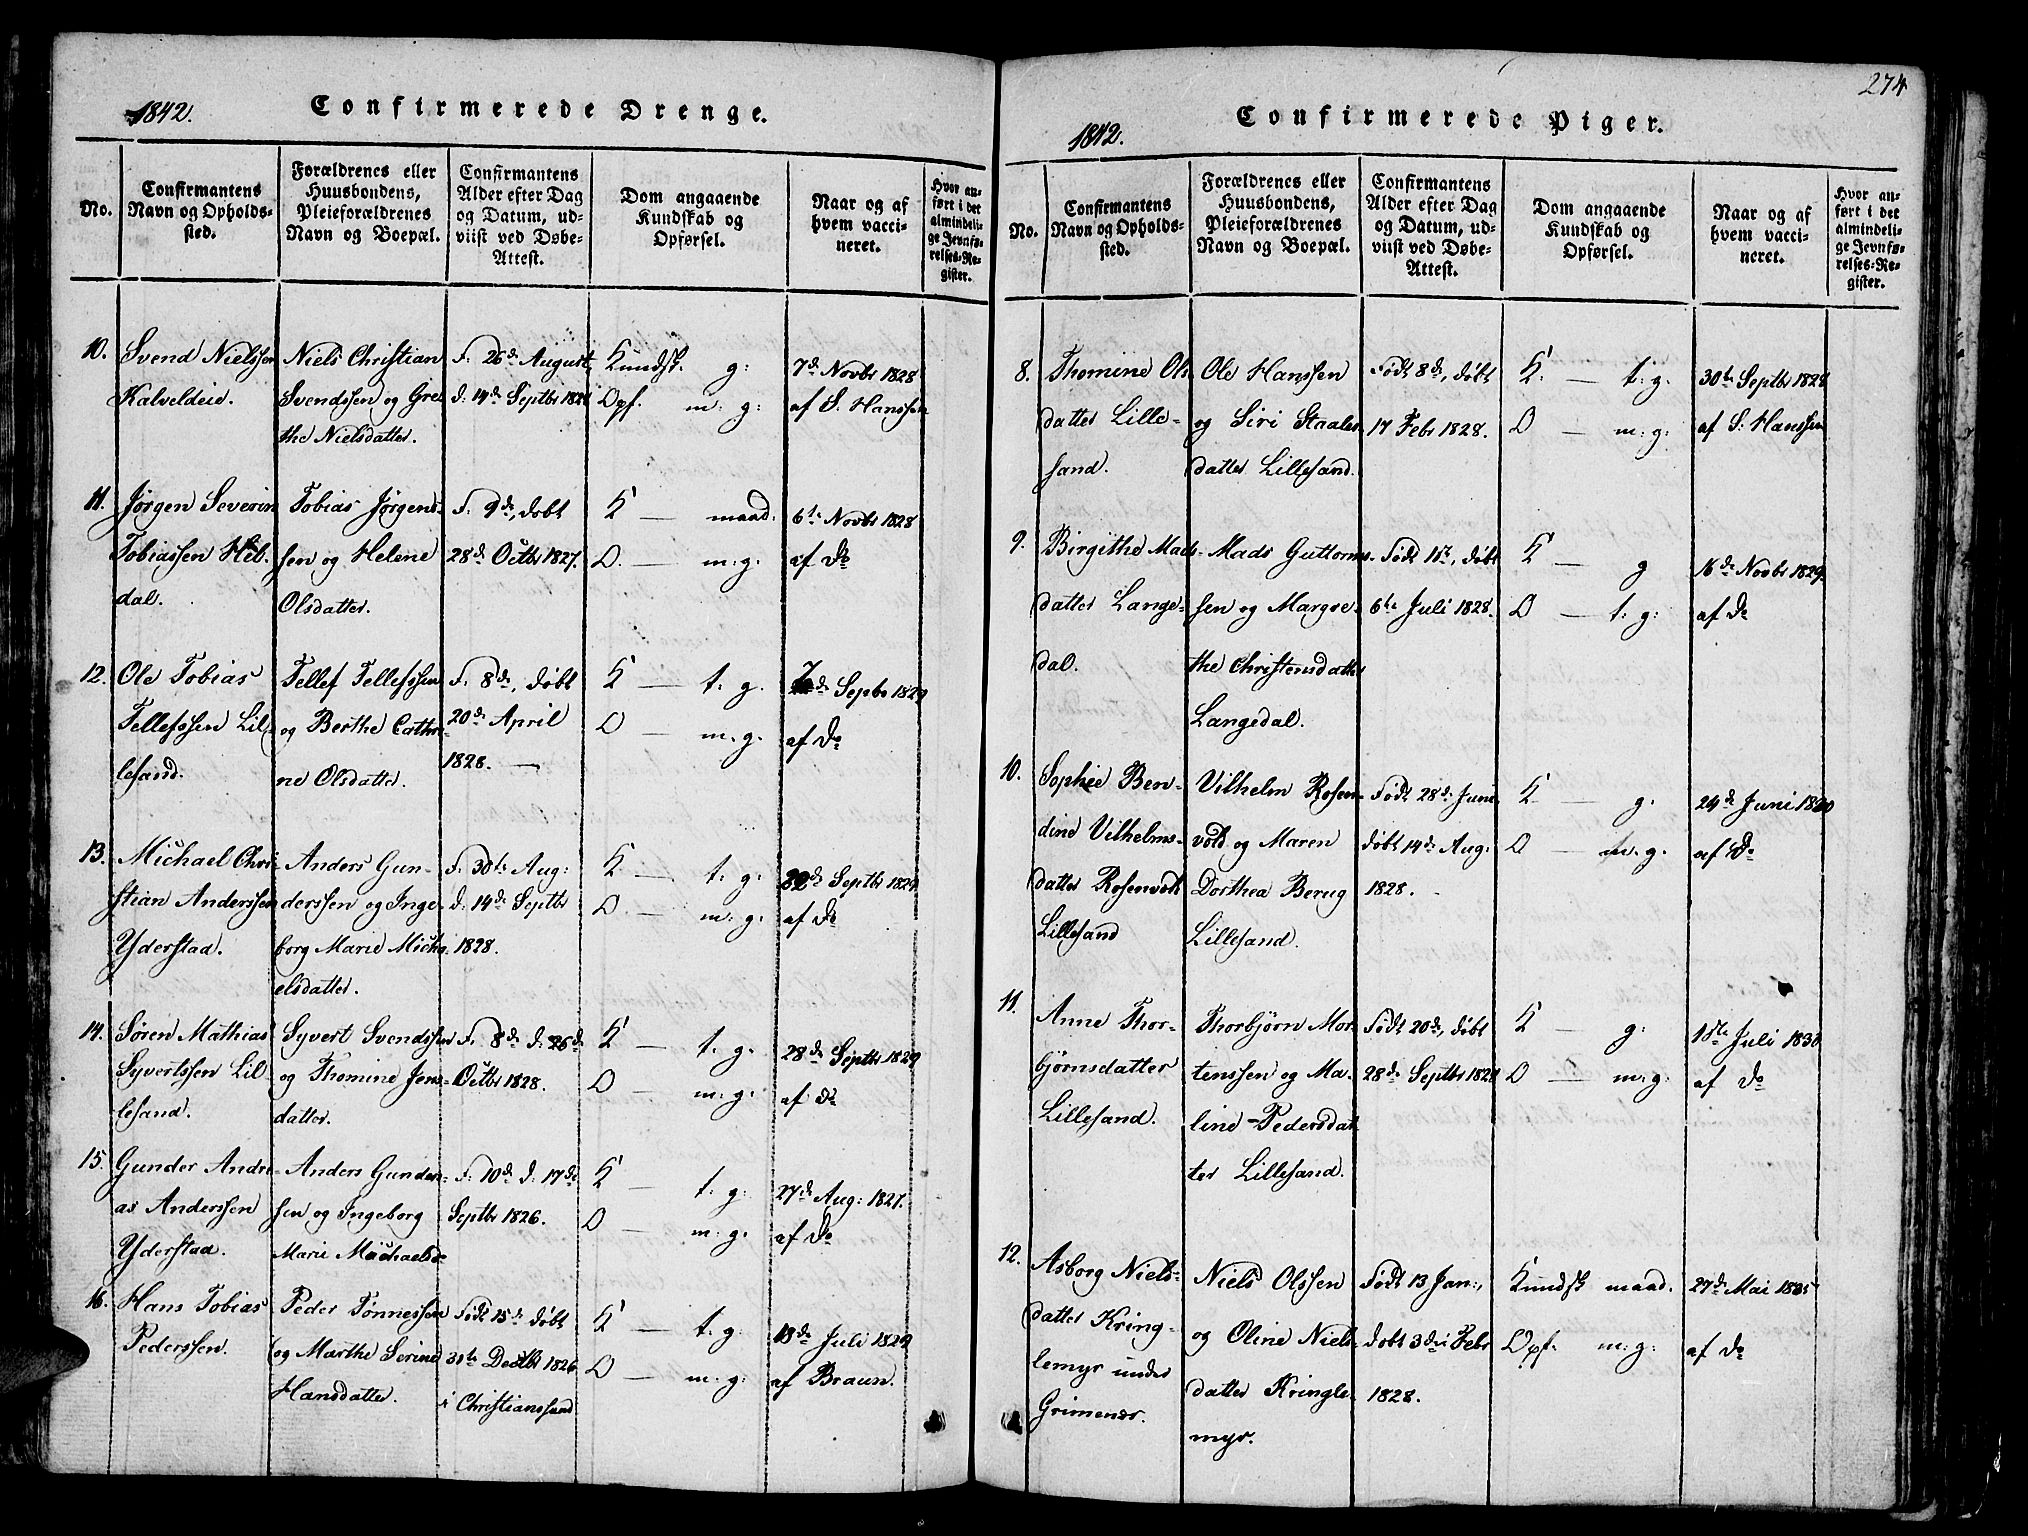 1842.
Confirmerede Drenge.
No.
Confirmantens
Navn og Opholds-
sted.
Forældrenes eller
Huusbondens,
Pleieforældrenes
Navn og Boepæl.
Confirmantens
Alder efter Dag
og Datum, ud-
viist ved Døbe-
Attest.
Dom angaaende
Kundskab og
Opførsel.
Naar og af
hvem vacci-
neret.
Hvor an-
ført i det
almindeli-
ge Jevnfø-
relses-Re-
gister.
10.
Svend Nielssen
Kalveldeie.
Niels Christian
Svendssen og Gre-
the Nielsdatter.
F. 26de August
d. 14de Septbr 1828
Kundsk. g:
Opf. m: g:
7de Novbr 1828
af S. Hanssen
11.
Jørgen Severin
Tobiassen Heb-
dal.
Tobias Jørgens-
sen og Helene
Olsdatter.
F. 9de, døbt
28de Octbr 1827.
K — maad:
O. — m: g:
6te Novbr 1828
af Do
12.
Ole Tobias
Tellefssen Lil-
lesand.
Tellef Tellefssen
og Berthe Cathri-
ne Olsdatter.
F. 8de, døbt
20de April
1828. —
K — t. g.
O — m. g.
Septbr 1829
af Do
13.
Michael Chri-
stian Anderssen
Yderstad.
Anders Gun-
derssen og Inge-
borg Marie Micha-
elsdatter.
F. 30te Aug:
d. 14de Septbr
1828.
K — t: g:
O. — m: g:
22de Septbr 1829
af Do
14.
Søren Mathias
Syvertssen Lil-
lesand.
Syvert Svendssen
og Thomine Jens-
datter.
F. 8de d. 26de
Octbr 1828.
K — t. g.
O — m. g.
28de Septbr 1829
af Do
15.
Gunder Andre-
as Anderssen
Yderstad.
Anders Gunder-
sen og Ingeborg
Marie Michaelsd.
F. 10de d. 17de
Septbr 1826.
K — t: g:
O — m: g:
27de Aug: 1827.
af Do
16.
Hans Tobias
Pederssen.
Peder Tønnessen
og Marthe Serine
Hansdatter.
Født 15de døbt
31te Decbr 1826
i Christianssand
K — t: g:
O — m: g:
18de Juli 1829
af Braun.
274
1842.
Confirmerede Piger.
No.
Confirmantens
Navn og Opholds-
sted.
Forældrenes eller
Huusbondens,
Pleieforældrenes
Navn og Boepæl.
Confirmantens
Alder efter Dag
og Datum, ud-
viist ved Døbe-
Attest.
Dom angaaende
Kundskab og
Opførsel.
Naar og af
hvem vacci-
neret.
Hvor an-
ført i det
almindeli-
ge Jevnfø-
relses-Re-
gister.
8.
Thomine Ols-
datter Lille-
sand.
Ole Hanssen
og Siri Staales-
datter Lillesand.
Født 8de, døbt
17 Febr 1828.
K. — t: g.
O — m: g:
30te Septbr 1828
af S. Hanssen
9.
Birgithe Mads-
datter Lange-
dal.
Mads Guttorms-
sen og Margre-
the Christensdatter
Langedal.
Født 1ste, døbt
6te Juli 1828.
K — g
O — t: g:
16de Novbr 1829
af Do
10.
Sophie Ben-
dine Vilhelms-
datter Rosenvold
Lillesand
Vilhelm Rosen-
vold og Maren
Dorthea Berug
Lillesand.
Født 28de Juni
døbt 14de Aug:
1828.
K — g.
O — m. g.
24de Juni 1830
af Do
11.
Anne Thor-
bjørnsdatter
Lillesand.
Thorbjørn Mor-
tenssen og Ma-
line Pedersdat-
ter Lillesand.
Født 20de, døbt
28de Septbr 1828
K — g:
O — m: g:
1ste Juli 1830
af Do
12.
Asborg Niels-
datter Kring-
lemyr under
Grimenes.
Niels Olssen
og Oline Niels-
datter Kringle-
myr.
Født 13 Jan:,
døbt 3die Febr
1828.
Kundsk maad.
Opf. m: g:
27de Mai 1835
af Do